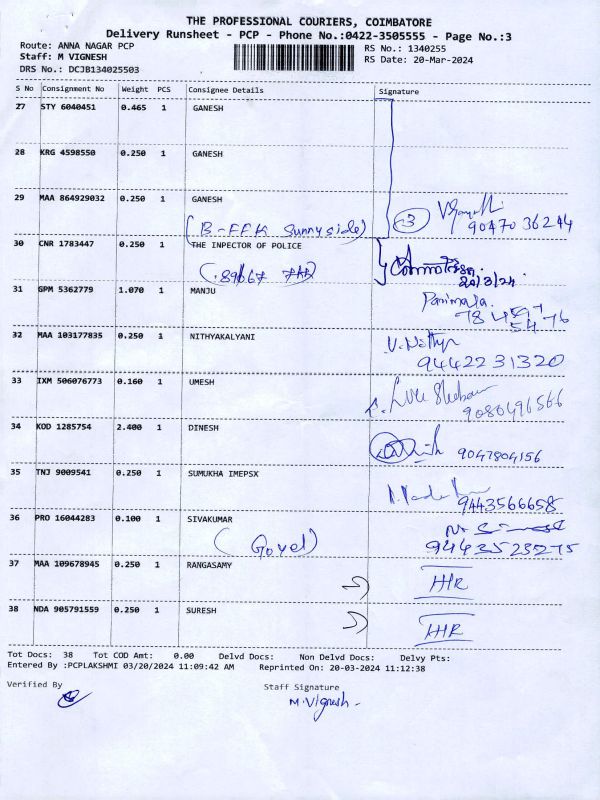 THE PROFESSIONAL COURIERS, COIMBATORE
Delivery Runsheet - PCP - Phone No.:0422-3505555 - Page No.:3
Route: ANNA NAGAR PCP RS No.: 1340255
Staff: M VIGNESH RS Date: 20-Mar-2024
DRS No.: DCJB134025503
S No Consignment No Weight PCS Consignee Details Signature
27 STY 6040451 0.465 1 GANESH
28 KRG 4598550 0.250 1 GANESH
29 MAA 864929032 0.250 1 GANESH
(B-FFK Sunnyside) 3 9047036244
30 CNR 1783447 0.250 1 THE INPECTOR OF POLICE
20/3/24
31 GPM 5362779 1.070 1 MANJU Parimala
32 MAA 103177835 0.250 1 NITHYAKALYANI V. Nithya
9442231320
33 IXM 506076773 0.160 1 UMESH
9080496566
34 KOD 1285754 2.400 1 DINESH
9047804156
35 TNJ 9009541 0.250 1 SUMUKHA IMEPSX
9443566658
36 PRO 16044283 0.100 1 SIVAKUMAR
(Goyel) 9443523275
37 MAA 109678945 0.250 1 RANGASAMY
38 NDA 905791559 0.250 1 SURESH
Tot Docs: 38 Tot COD Amt: 0.00 Delvd Docs: Non Delvd Docs: Delvy Pts:
Entered By :PCPLAKSHMI 03/20/2024 11:09:42 AM Reprinted On: 20-03-2024 11:12:38
Verified By Staff Signature
M. Vignesh